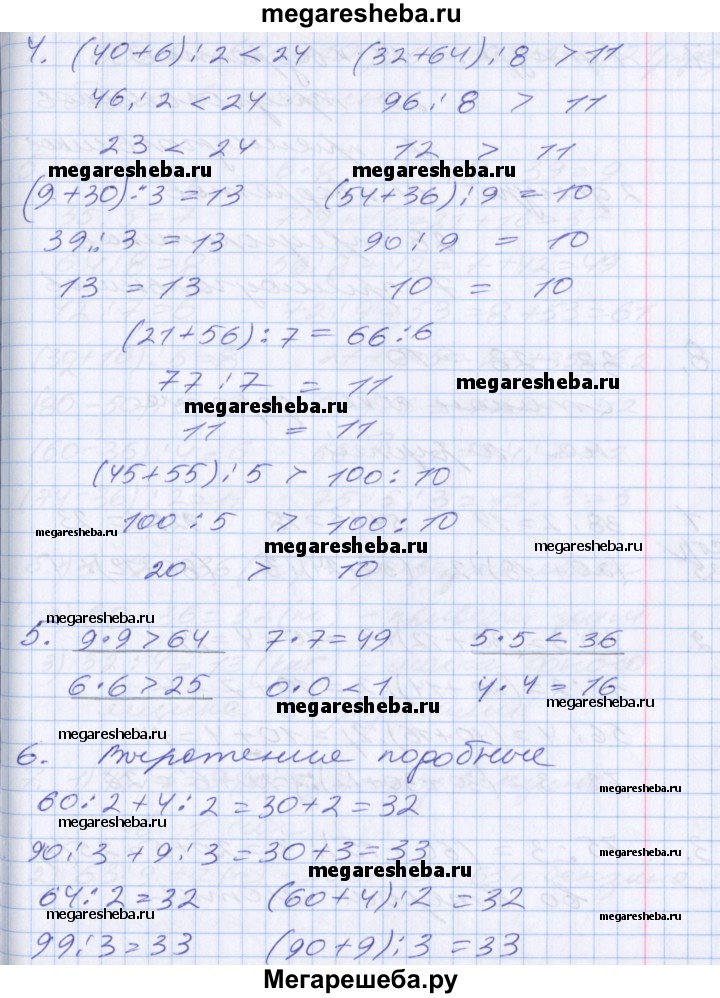 megaresheba.ru
4. (40+6):2 < 24 (32+64):8 > 11
46:2 < 24 96:8 > 11
23 < 24 12 > 11
megaresheba.ru megaresheba.ru
(9+30):3 = 13 (54+36):9 = 10
39:3 = 13 90:9 = 10
13 = 13 10 = 10
(21+56):7 = 66:6
77:7 = 11
megaresheba.ru
megaresheba.ru
11 = 11
(45+55):5 > 100:10
100:5 > 100:10
megaresheba.ru megaresheba.ru megaresheba.ru
20 > 10
megaresheba.ru
5. 9·9 > 64 7·7 = 49 5·5 < 36
6·6 > 25 0·0 < 1 4·4 = 16
megaresheba.ru
megaresheba.ru megaresheba.ru
6. Выражение подобные
60:2+4:2 = 30+2 = 32
megaresheba.ru
megaresheba.ru
90:3+9:3 = 30+3 = 33
megaresheba.ru
megaresheba.ru
64:2 = 32 (60+4):2 = 32
megaresheba.ru megaresheba.ru
99:3 = 33 (90+9):3 = 33
Мегарешеба.ру